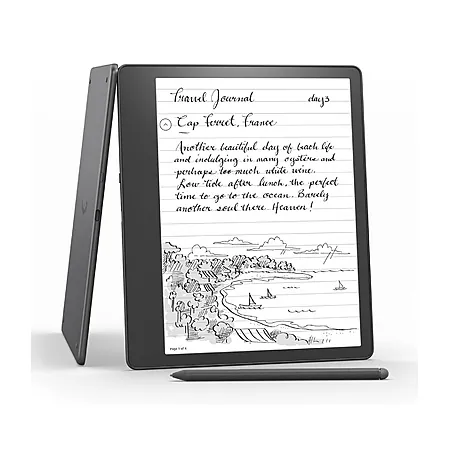 Travel Journal day 3
Cap Ferret, France
Another beautiful day of beach life
and indulging in many oysters and
perhaps too much white wine.
Low tide after lunch, the perfect
time to go to the ocean. Barely
another soul there. Heaven!
Page 1 of 6